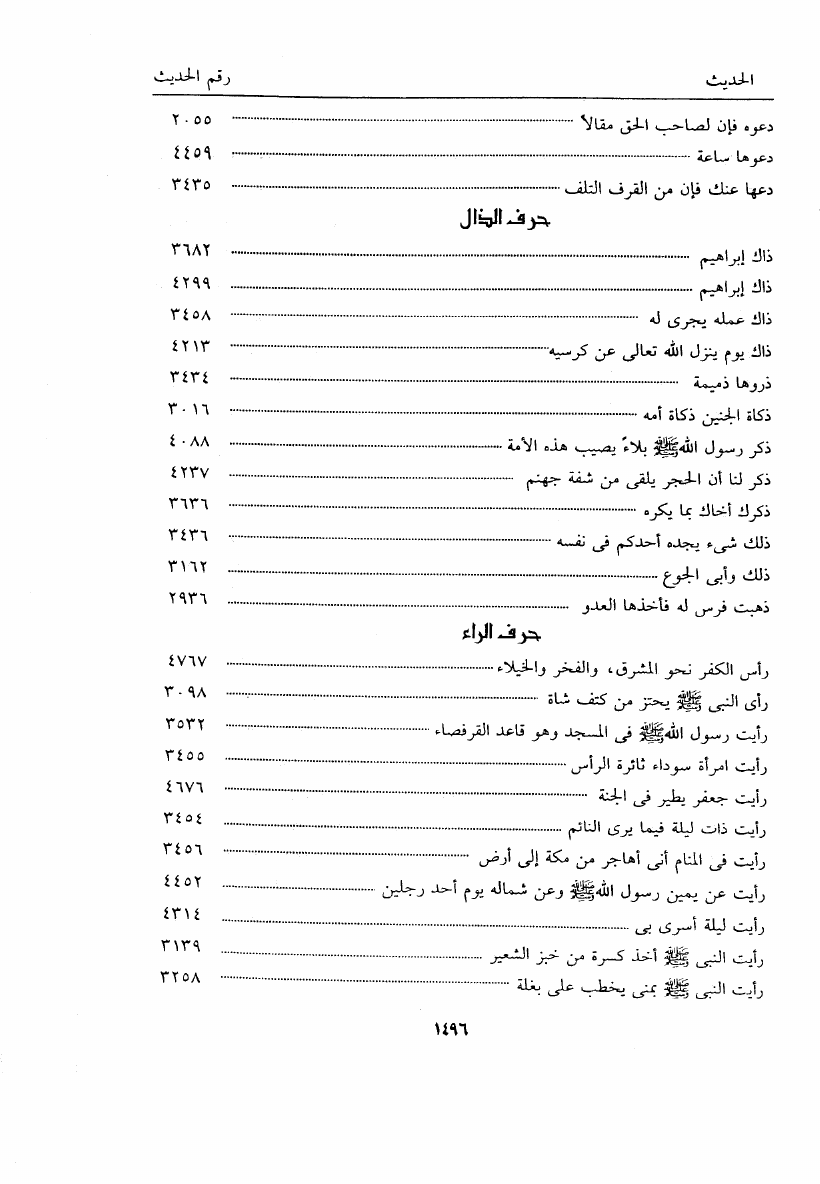 الحديث رقم الحديث
دعوه فإن لصاحب الحق مقالاً ٢٠٥٥
دعوها ساعة ٤٤٥٩
دعها عنك فإن من القرف التلف ٣٤٣٥
حرف الذال
ذاك إبراهيم ٣٦٨٢
ذاك إبراهيم ٤٢٩٩
ذاك عمله يجرى له ٣٤٥٨
ذاك يوم ينزل الله تعالى عن كرسيه ٤٢١٣
ذروها ذميمة ٣٤٣٤
ذكاة الجنين ذكاة أمه ٣٠١٦
ذكر رسول الله ﷺ بلاءً يصيب هذه الأمة ٤٠٨٨
ذكر لنا أن الحجر يلقى من شفة جهنم ٤٢٣٧
ذكرك أخاك بما يكره ٣٦٣٦
ذلك شىء يجده أحدكم فى نفسه ٣٤٣٦
ذلك وأبى الجوع ٣١٦٢
ذهبت فرس له فأخذها العدو ٢٩٣٦
حرف الراء
رأس الكفر نحو المشرق، والفخر والخيلاء ٤٧٦٧
رأى النبى ﷺ يحتز من كتف شاة ٣٠٩٨
رأيت رسول الله ﷺ فى المسجد وهو قاعد القرفصاء ٣٥٣٢
رأيت امرأة سوداء ثائرة الرأس ٣٤٥٥
رأيت جعفر يطير فى الجنة ٤٦٧٦
رأيت ذات ليلة فيما يرى النائم ٣٤٥٤
رأيت فى المنام أنى أهاجر من مكة إلى أرض ٣٤٥٦
رأيت عن يمين رسول الله ﷺ وعن شماله يوم أحد رجلين ٤٤٥٢
رأيت ليلة أسرى بى ٤٣١٤
رأيت النبى ﷺ أخذ كسرة من خبز الشعير ٣١٣٩
رأيت النبى ﷺ بمنى يخطب على بغلة ٣٢٥٨
١٤٩٦